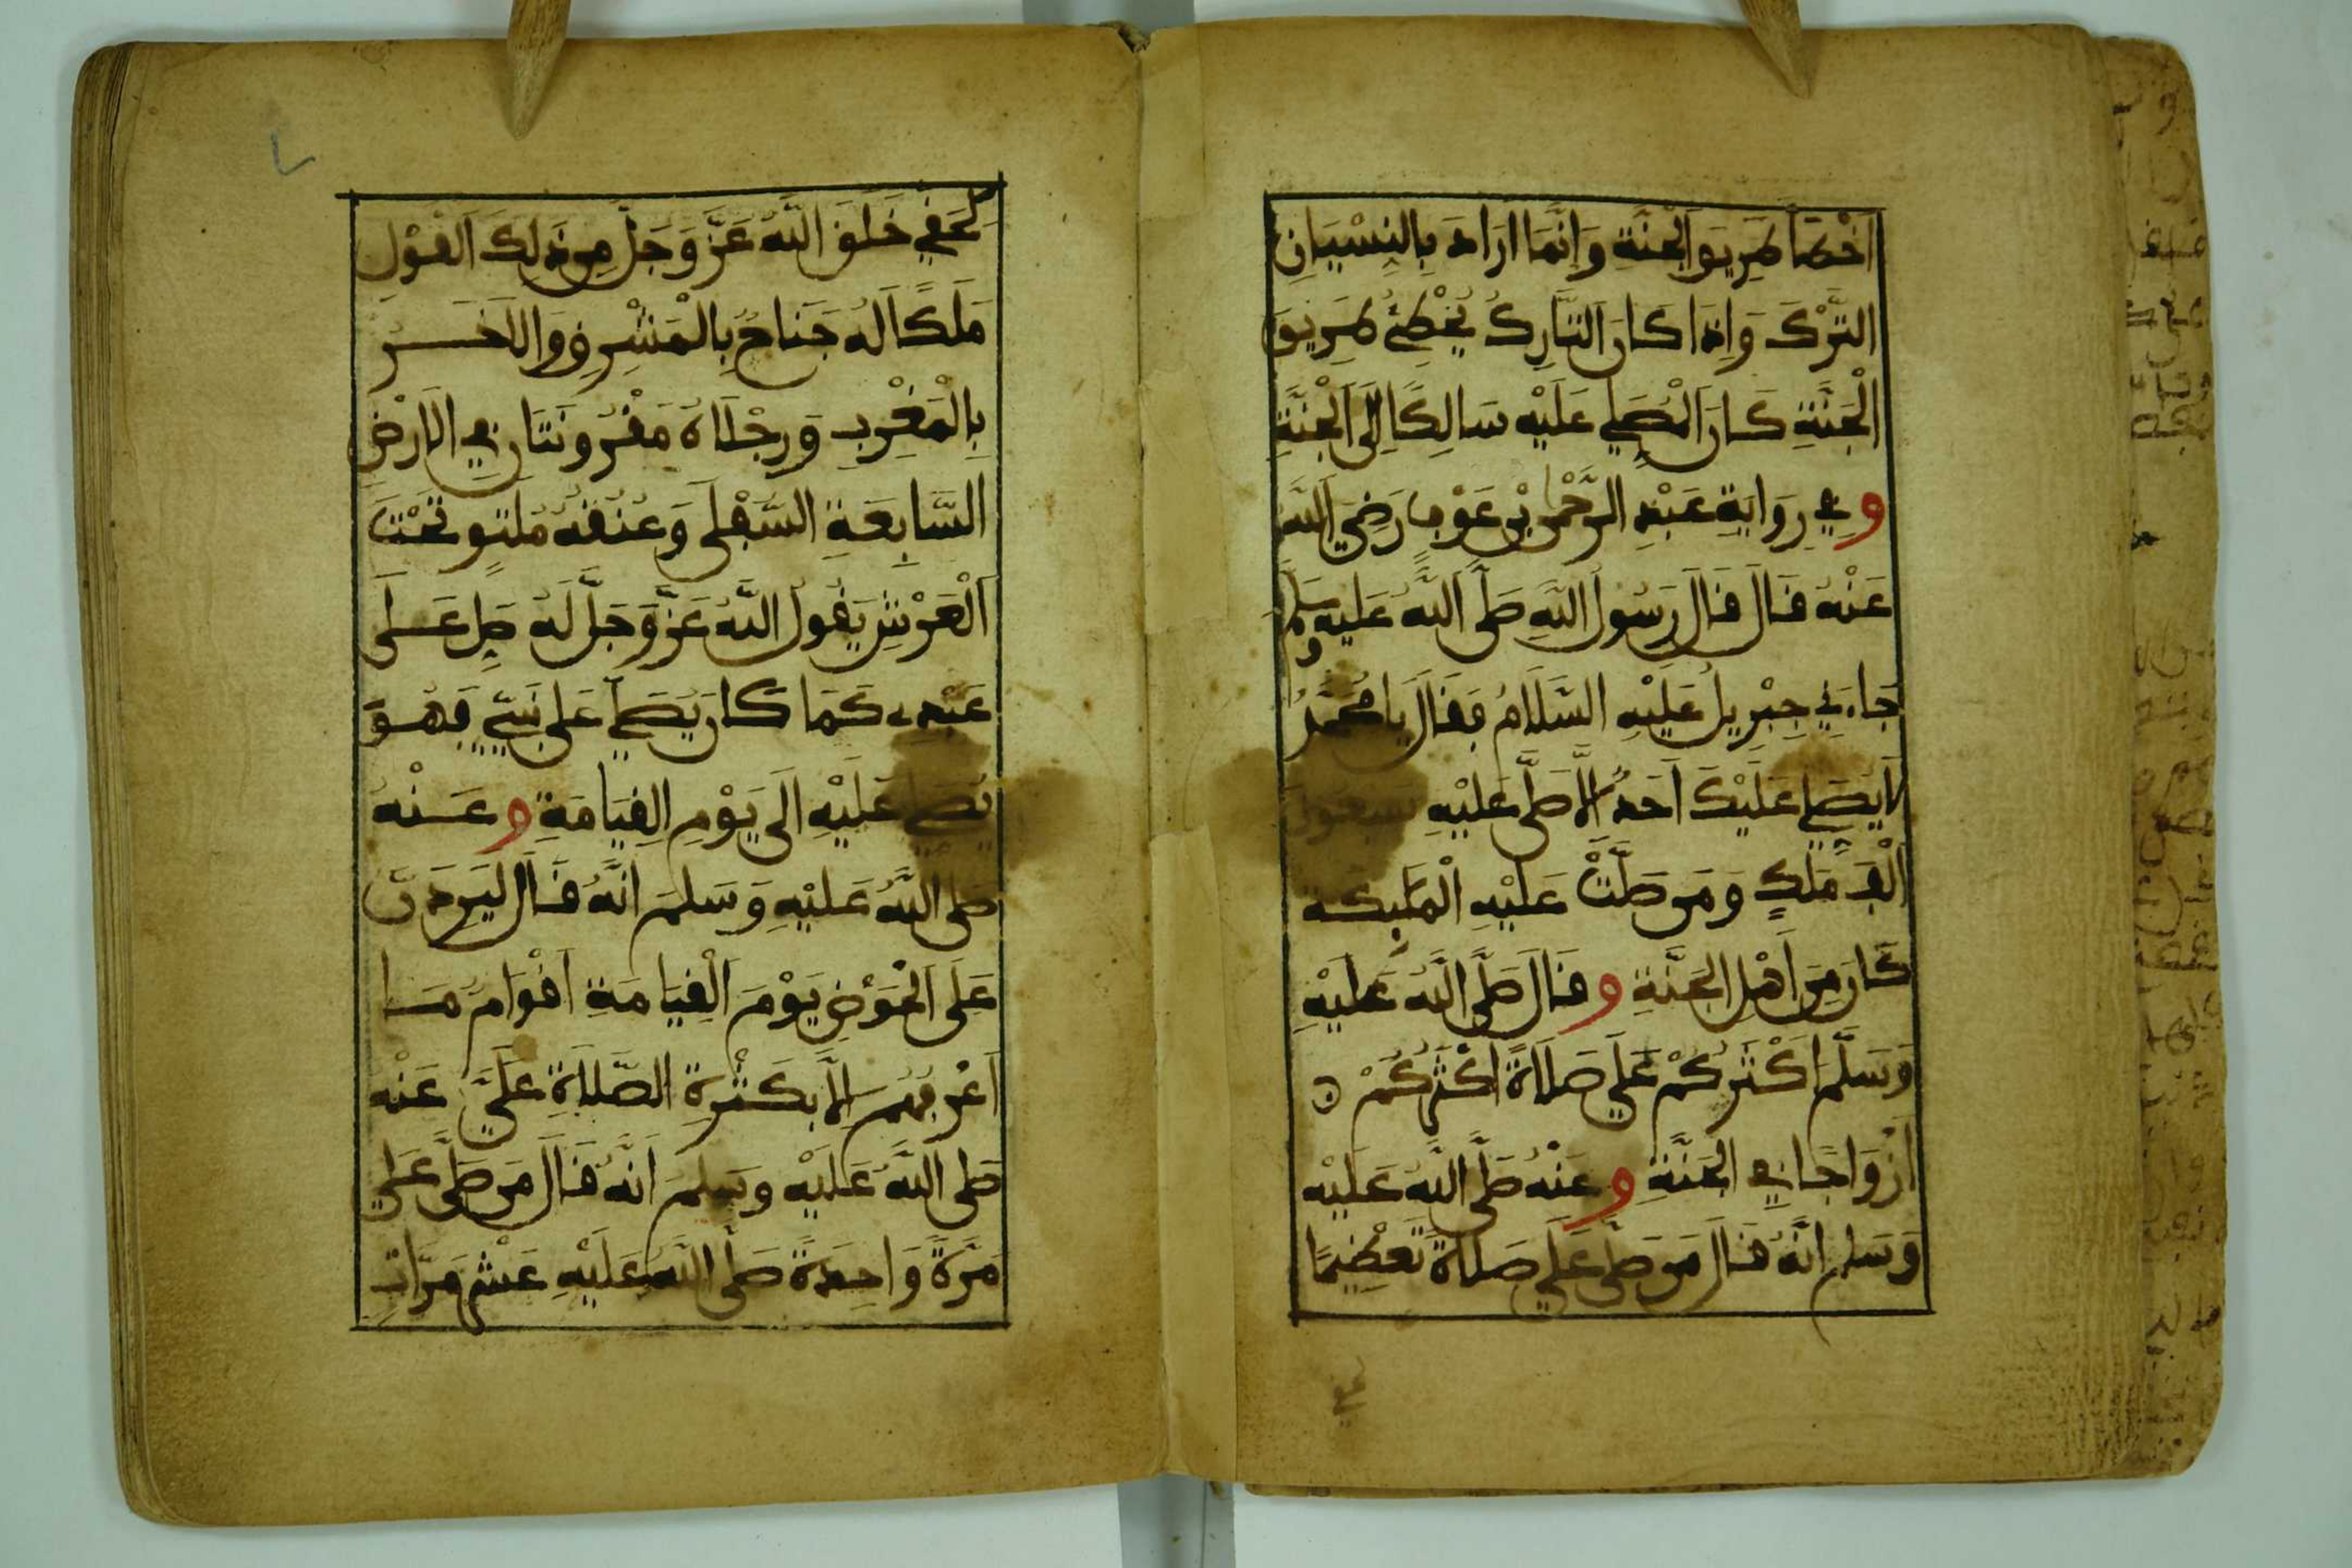 اَخْطَأَ طَرِيقَ الْجَنَّةِ وَإِنَّمَا اَرَادَ بِالنِّسْيَانِ
التَّرْكَ وَإِذَا كَانَ التَّارِكُ يُخْطِئُ طَرِيقَ
الْجَنَّةِ كَانَ الْمُصَلِّي عَلَيْهِ سَالِكًا اِلَى الْجَنَّةِ
وَفِي رِوَايَةِ عَبْدِ الرَّحْمٰنِ بْنِ عَوْفٍ رَضِيَ اللَّهُ
عَنْهُ قَالَ قَالَ رَسُولُ اللَّهِ صَلَّى اللَّهُ عَلَيْهِ وَسَلَّمَ
جَاءَنِي جِبْرِيلُ عَلَيْهِ السَّلَامُ فَقَالَ يَا مُحَمَّدُ
لَا يُصَلِّي عَلَيْكَ اَحَدٌ اِلَّا صَلَّى عَلَيْهِ سَبْعُونَ
اَلْفَ مَلَكٍ وَمَنْ صَلَّتْ عَلَيْهِ الْمَلٰئِكَةُ
كَانَ مِنَ اَهْلِ الْجَنَّةِ وَقَالَ صَلَّى اللَّهُ عَلَيْهِ
وَسَلَّمَ اَكْثَرُكُمْ عَلَيَّ صَلَاةً اَكْثَرُكُمْ
اَزْوَاجًا فِي الْجَنَّةِ وَعَنْهُ صَلَّى اللَّهُ عَلَيْهِ
وَسَلَّمَ اَنَّهُ قَالَ مَنْ صَلَّى عَلَيَّ صَلَاةً تَعْظِيمًا
لِحَقِّي خَلَقَ اللَّهُ عَزَّ وَجَلَّ مِنْ ذَلِكَ الْقَوْلِ
مَلَكًا لَهُ جَنَاحٌ بِالْمَشْرِقِ وَالْاَخَرُ
بِالْمَغْرِبِ وَرِجْلَاهُ مَقْرُونَتَانِ فِي الْاَرْضِ
السَّابِعَةِ السُّفْلَى وَعُنُقُهُ مُلْتَوٍ تَحْتَ
الْعَرْشِ يَقُولُ اللَّهُ عَزَّ وَجَلَّ لَهُ صَلِّ عَلَى
عَبْدِي كَمَا كَانَ يُصَلِّي عَلَى نَبِيِّي فَهُوَ
يُصَلِّي عَلَيْهِ اِلَى يَوْمِ الْقِيَامَةِ وَعَنْهُ
صَلَّى اللَّهُ عَلَيْهِ وَسَلَّمَ اَنَّهُ قَالَ لَيَرِدَنَّ
عَلَى الْحَوْضِ يَوْمَ الْقِيَامَةِ اَقْوَامٌ مَا
اَعْرِفُهُمْ اِلَّا بِكَثْرَةِ الصَّلَاةِ عَلَيَّ عَنْهُ
صَلَّى اللَّهُ عَلَيْهِ وَسَلَّمَ اَنَّهُ قَالَ مَنْ صَلَّى عَلَيَّ
مَرَّةً وَاحِدَةً صَلَّى اللَّهُ عَلَيْهِ عَشْرَ مَرَّاتٍ